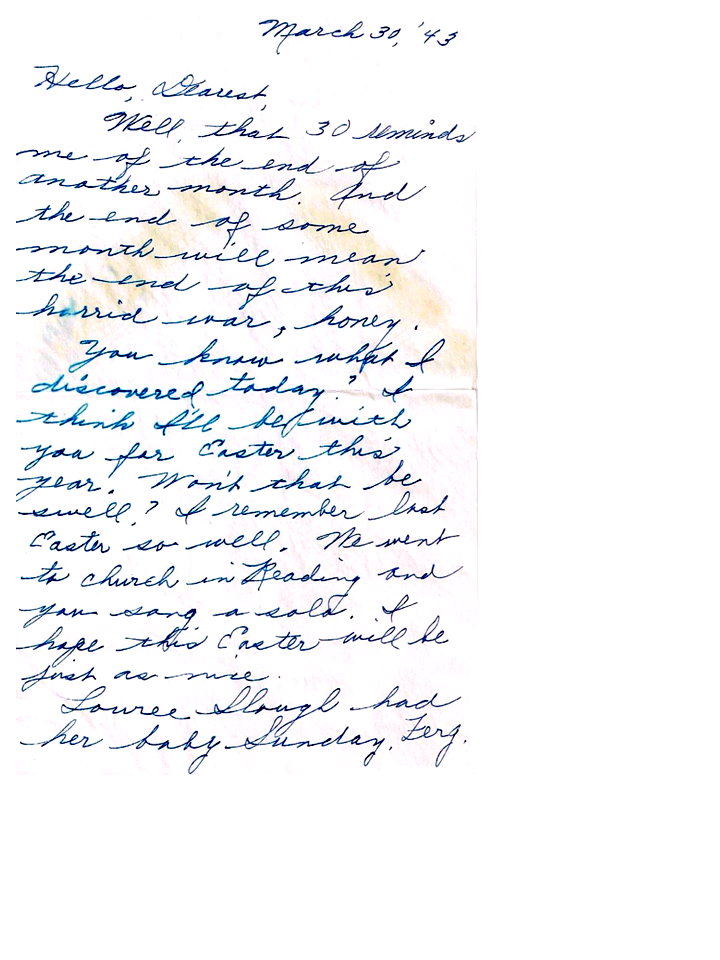 March 30, '43
Hello, Dearest,
Well, that 30 reminds
me of the end of
another month. And
the end of some
month will mean
the end of this
horrid war, honey.
You know what I
discovered today? I
think I'll be with
you for Easter this
year! Won't that be
swell? I remember last
Easter so well. We went
to church in Reading and
you sang a solo. I
hope this Easter will be
just as nice.
Louree had
her baby Sunday, Ferg.